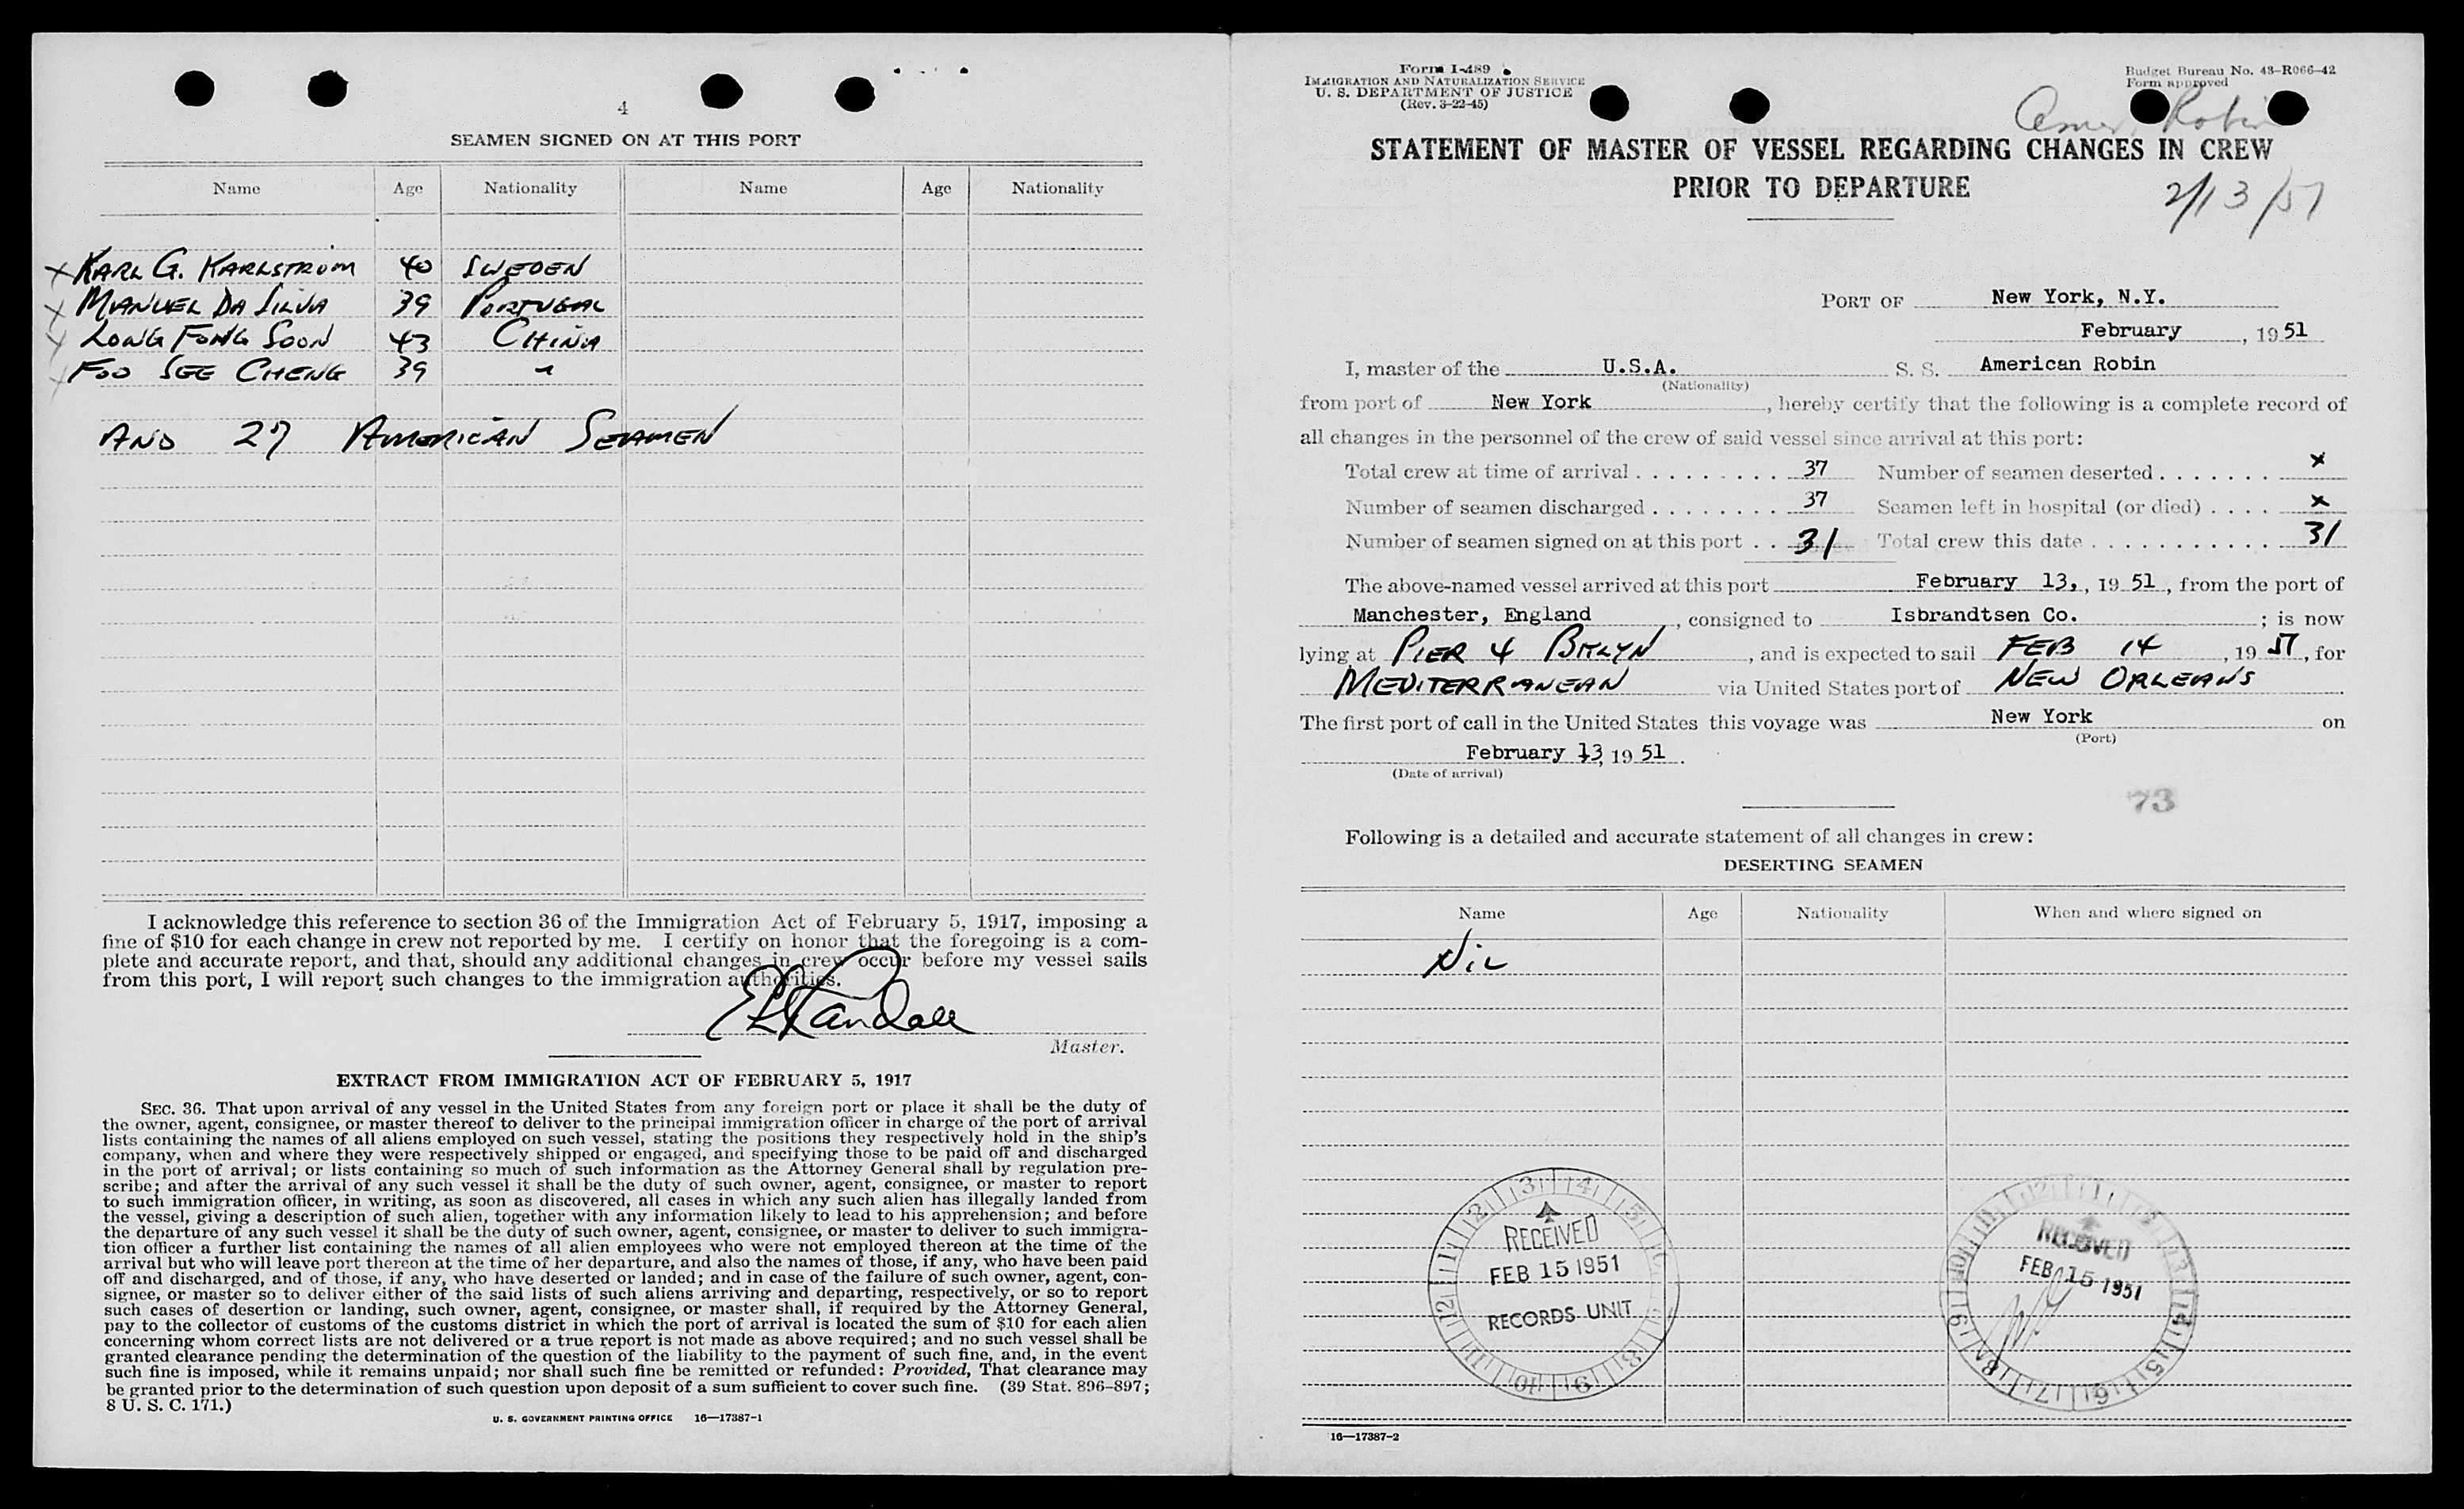 4
SEAMEN SIGNED ON AT THIS PORT
Name Age Nationality Name Age Nationality
x KARL G. KARLSTROM 40 SWEDEN
x MANUEL DA SILVA 39 PORTUGAL
x LONG FONG SOON 43 CHINA
x FOO SEE CHENG 39 "
AND 27 AMERICAN SEAMEN
I acknowledge this reference to section 36 of the Immigration Act of February 5, 1917, imposing a
fine of $10 for each change in crew not reported by me. I certify on honor that the foregoing is a com-
plete and accurate report, and that, should any additional changes in crew occur before my vessel sails
from this port, I will report such changes to the immigration authorities.
Master.
EXTRACT FROM IMMIGRATION ACT OF FEBRUARY 5, 1917
SEC. 36. That upon arrival of any vessel in the United States from any foreign port or place it shall be the duty of
the owner, agent, consignee, or master thereof to deliver to the principal immigration officer in charge of the port of arrival
lists containing the names of all aliens employed on such vessel, stating the positions they respectively hold in the ship's
company, when and where they were respectively shipped or engaged, and specifying those to be paid off and discharged
in the port of arrival; or lists containing so much of such information as the Attorney General shall by regulation pre-
scribe; and after the arrival of any such vessel it shall be the duty of such owner, agent, consignee, or master to report
to such immigration officer, in writing, as soon as discovered, all cases in which any such alien has illegally landed from
the vessel, giving a description of such alien, together with any information likely to lead to his apprehension; and before
the departure of any such vessel it shall be the duty of such owner, agent, consignee, or master to deliver to such immigra-
tion officer a further list containing the names of all alien employees who were not employed thereon at the time of the
arrival but who will leave port thereon at the time of her departure, and also the names of those, if any, who have been paid
off and discharged, and of those, if any, who have deserted or landed; and in case of the failure of such owner, agent, con-
signee, or master so to deliver either of the said lists of such aliens arriving and departing, respectively, or so to report
such cases of desertion or landing, such owner, agent, consignee, or master shall, if required by the Attorney General,
pay to the collector of customs of the customs district in which the port of arrival is located the sum of $10 for each alien
concerning whom correct lists are not delivered or a true report is not made as above required; and no such vessel shall be
granted clearance pending the determination of the question of the liability to the payment of such fine, and, in the event
such fine is imposed, while it remains unpaid; nor shall such fine be remitted or refunded: Provided, That clearance may
be granted prior to the determination of such question upon deposit of a sum sufficient to cover such fine. (39 Stat. 896-897;
8 U. S. C. 171.)
U. S. GOVERNMENT PRINTING OFFICE 16—17387-1
Form I-489
IMMIGRATION AND NATURALIZATION SERVICE
U. S. DEPARTMENT OF JUSTICE
(Rev. 3-22-45)
Budget Bureau No. 43-R066-42
Form approved
Amer. Robin
STATEMENT OF MASTER OF VESSEL REGARDING CHANGES IN CREW
PRIOR TO DEPARTURE
2/13/51
PORT OF New York, N.Y.
February , 19 51
I, master of the U.S.A. S. S. American Robin
(Nationality)
from port of New York , hereby certify that the following is a complete record of
all changes in the personnel of the crew of said vessel since arrival at this port:
Total crew at time of arrival . . . . . . . . . 37 Number of seamen deserted . . . . . . . x
Number of seamen discharged . . . . . . . . 37 Seamen left in hospital (or died) . . . . x
Number of seamen signed on at this port . . 31 Total crew this date . . . . . . . . . . . 31
The above-named vessel arrived at this port February 13, , 19 51 , from the port of
Manchester, England , consigned to Isbrandtsen Co. ; is now
lying at PIER 4 BKLYN , and is expected to sail FEB 14 , 19 51 , for
MEDITERRANEAN via United States port of NEW ORLEANS
The first port of call in the United States this voyage was New York on
(Port)
February 13, 19 51 .
(Date of arrival)
73
Following is a detailed and accurate statement of all changes in crew:
DESERTING SEAMEN
Name Age Nationality When and where signed on
NIL
RECEIVED
FEB 15 1951
RECORDS UNIT
RECEIVED
FEB 15 1951
16—17387-2